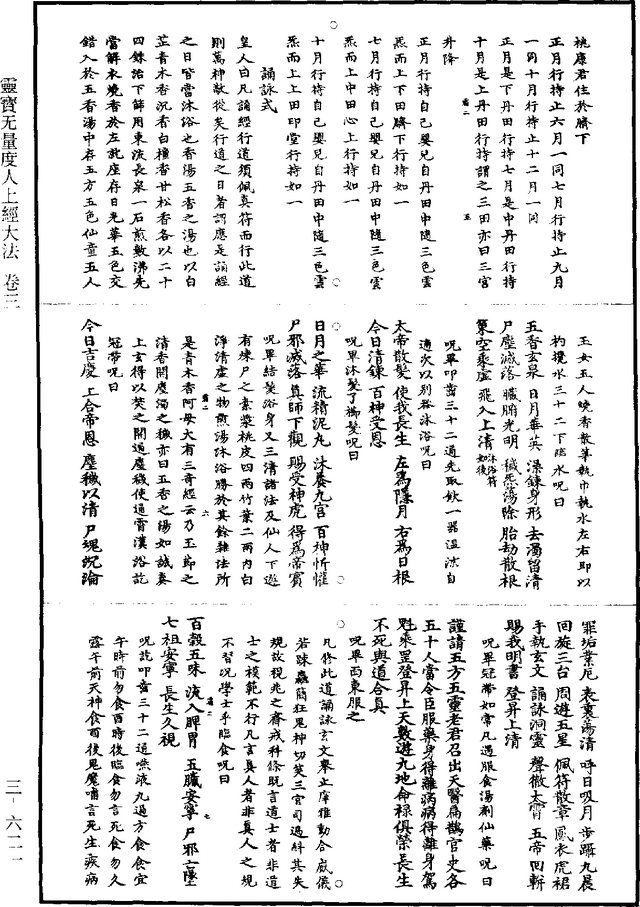 桃康君住於臍下
正月行持止六月一同七月行持止九月
一同十月行持止十二月一同
正月是下丹田行持七月是中丹田行持
十月是上丹田行持謂之三田亦曰三宮
升降
正月行持自己嬰兒自丹田中隨三色雲
炁而上下田臍下行持如一
七月行持自己嬰兒自丹田中隨三色雲
炁而上中田心上行持如一
十月行持自己嬰兒自丹田中隨三色雲
炁而上上田印堂行持如一
誦詠式
皇人曰凡誦經行道須佩真符而行此道
則萬神敬從矣行道之日者謂應是誦經
之日皆當沐浴也香湯五香之湯也以白
芷青木香沉香白檀香甘松香各以二十
四銖治下篩用東流長泉一石煎數沸先
當解衣燒香於左訖座存日光華五色交
錯入於五香湯中存五方五色仙童五人
玉女五人燒香散華執巾執水左右即以
杓攪水三十二下臨水呪曰
五香玄泉 日月華英 澡鍊身形 去濁留清
尸塵滅落 臟腑光明 穢炁蕩除 胎劫散根
策空乘虛 飛入上清 沐浴符如後
呪畢叩齒三十二通先取飲一器溫涼自
適次以別器沐浴呪曰
太帝散髮 使我長生 左爲隱月 右爲日根
今日清鍊 百神受恩
呪畢沐髮了櫛髮呪曰
日月之華 流精泥丸 沐養九宮 百神忻懽
尸邪滅落 真師下觀 賜受神虎 得爲帝賓
呪畢結髮浴身又三清諸法及仙人下遊
有煉尸之素漿桃皮四兩竹葉二兩內白
淨清虛之物煎湯沐浴勝於其餘雜法所
是青木香阿母大有三奇經云乃玉節之
清香開塵濁之穢亦曰五香之湯如誠奏
上玄得以焚之開通塵穢使通霄漢浴訖
冠帶呪曰
今日吉慶 上合帝恩 塵穢以清 尸塊沉淪
罪垢業厄 表裏蕩清 呼日吸月 步躡九晨
回旋三台 周遊五星 佩符散章 鳳衣虎裙
手執玄文 誦詠洞靈 聲徹太霄 五帝回軿
賜我明書 登昇上清
呪畢冠帶如常凡遇服食湯劑仙藥呪曰
謹請五方五靈老君召出天醫扁鵲官吏各
五十人當令臣服藥身得離病病得離身駕
魁乘罡登昇上天數遊九地命祿俱榮長生
不死與道合真
呪畢西東服之
凡修此道誦詠玄文舉止庠雅動合威儀
若躁蟲簡狂鬼神切笑三官司過糾其失
規故視兆之齋戒科條既言道士者非道
士之模範不行凡言真人者非真人之規
不習況學士乎臨食呪曰
百穀五味 流入脾胃 五臟安寧 尸邪亡墜
七祖安寧 長生久視
呪訖叩齒三十二通嚥液九過方食食宜
午時前勿食酉時後臨食勿言死食勿久
露午前天神食酉後鬼魔嘯言死生疾病
靈寶无量度人上經大法 卷三
三-六二一